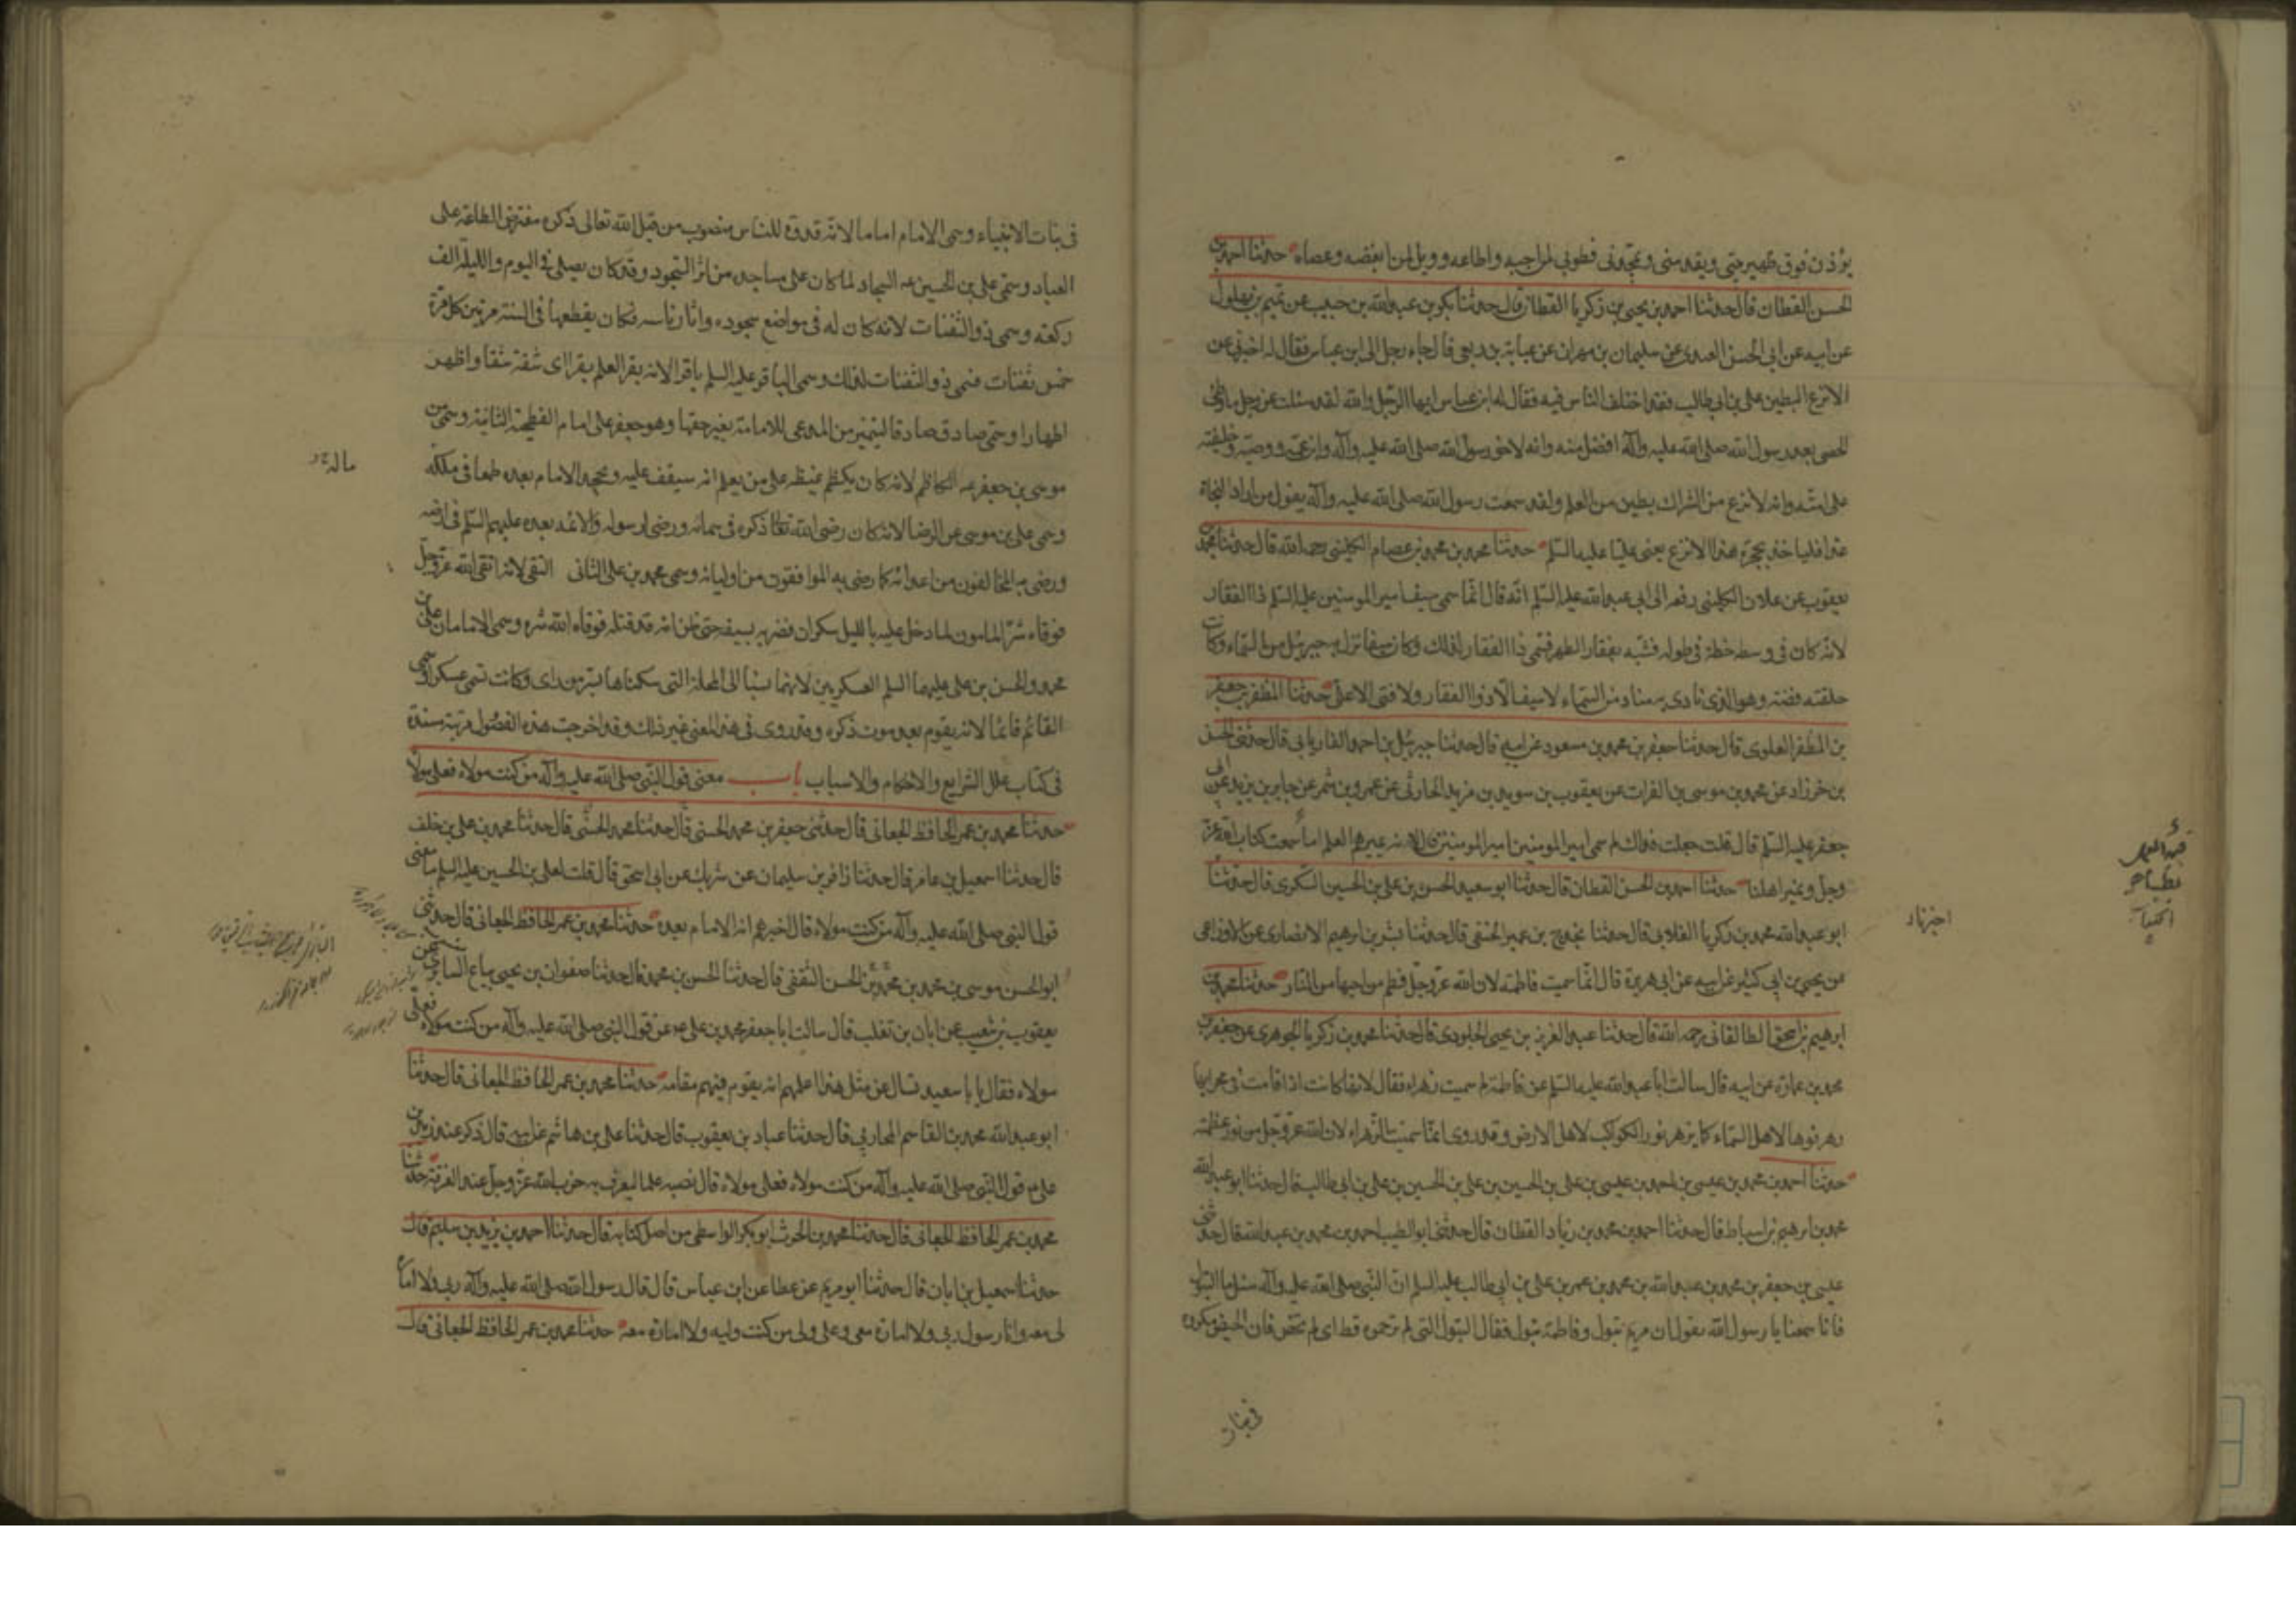 يؤذن فوق ظهير حتى ويقد منى ويحجونى فطوبى لمن احبه واطاعه وويل لمن ابغضه وعصاه حدثنا احمد بن
الحسن القطان قال حدثنا احمد بن يحيى بن زكريا القطان قال حدثنا بكر بن عبد الله بن حبيب عن تميم بن بهلول
عن ابيه عن ابى الحسن العبدى عن سليمان بن مهران عن عباية بن ربعى قال جاء رجل الى ابن عباس فقال له اخبرنى عن
الانزع البطين على بن ابى طالب فقد اختلف الناس فيه فقال له ابن عباس ايها الرجل والله لقد سئلت عن رجل ما وطئ
الحصى بعد رسول الله صلى الله عليه وآله افضل منه وانه لاخو رسول الله صلى الله عليه وآله وابن عمه ووصيه وخليفته
على امته وانه لانزع من الشرك بطين من العلم ولقد سمعت رسول الله صلى الله عليه وآله يقول من اراد النجاة
غدا فلياخذ بحجزة هذا الانزع يعنى عليا عليه السلم حدثنا محمد بن محمد بن عصام الكلينى رحمه الله قال حدثنا محمد
يعقوب عن علان الكلينى رفعه الى ابى عبد الله عليه السلم انه قال انما سمى سيف امير المومنين عليه السلم ذا الفقار
لانه كان فى وسطه خطة فى طوله فشبه بفقار الظهر فسمى ذا الفقار لذلك وكان سيفا نزل به جبرئيل من السماء وكانت
حلقته فضة وهو الذى نادى به مناد من السماء لا سيف الا ذوا الفقار ولا فتى الا على حدثنا المظفر بن جعفر
بن المظفر العلوى قال حدثنا جعفر بن محمد بن مسعود عن ابيه قال حدثنا جبرئيل بن احمد الفاريابى قال حدثنى الحسن
بن خرزاد عن محمد بن موسى بن الفرات عن يعقوب بن سويد بن مزيد الحارثى عن عمرو بن شمر عن جابر بن يزيد عن ابى
جعفر عليه السلم قال قلت جعلت فداك لم سمى امير المومنين امير المومنين قال لانه يميرهم العلم اما سمعت كتاب الله عز
وجل ونمير اهلنا حدثنا احمد بن الحسن القطان قال حدثنا ابو سعيد الحسن بن على بن الحسين السكرى قال حدثنا
ابو عبد الله محمد بن زكريا الغلابى قال حدثنا مخدوج بن عمير الحنفى قال حدثنا بشر بن ابرهيم الانصارى عن الاوزاعى
عن يحيى بن ابى كثير عن ابيه عن ابى هريرة قال انما سميت فاطمة لان الله عز وجل فطم من احبها من النار حدثنا محمد بن
ابرهيم بن اسحق الطالقانى رحمه الله قال حدثنا عبد العزيز بن يحيى الجلودى قال حدثنا محمد بن زكريا الجوهرى عن جعفر بن
محمد بن عمارة عن ابيه قال سالت ابا عبد الله عليه السلم عن فاطمة لم سميت زهراء فقال لانها كانت اذا قامت فى محرابها
زهر نورها لاهل السماء كما يزهر نور الكواكب لاهل الارض وقد روى انما سميت الزهراء لان الله عز وجل من نور عظمته
حدثنا احمد بن محمد بن عيسى بن احمد بن عيسى بن على بن الحسين بن على بن الحسين بن على بن ابى طالب قال حدثنا ابو عبد الله
محمد بن ابرهيم بن اسباط قال حدثنا احمد بن محمد بن زياد القطان قال حدثنى ابو الطيب احمد بن محمد بن عبد الله قال حدثنى
عيسى بن جعفر بن محمد بن عبد الله بن محمد بن عمر بن على بن ابى طالب عليه السلم ان النبى صلى الله عليه وآله سئل ما البتول
فانا سمعنا يا رسول الله يقول ان مريم بتول وفاطمة بتول فقال البتول التى لم تر حمرة قط اى لم تحض فان الحيض مكروه
اخزياد
فى بنات
فى بنات الانبياء وسمى الامام اماما لانه قدوة للناس منصوب من قبل الله تعالى ذكره مفترض الطاعة على
العباد وسمى على بن الحسين عه السجاد لما كان على مساجده من اثر السجود وقد كان يصلى فى اليوم والليلة الف
ركعة وسمى ذو الثفنات لانه كان له فى مواضع سجوده واثار ناسه فكان يقطعها فى السنة مرتين كل مرة
خمس ثفنات فسمى ذو الثفنات لذلك وسمى الباقر عليه السلم باقرا لانه بقر العلم بقرا اى شقه شقا واظهر
اظهارا وسمى صادق صادقا ليتميز من المدعى للامامة بغير حقها وهو جعفر على امام الفطحية الثانية وسمى
موسى بن جعفر عه الكاظم لانه كان يكظم غيظه على من يعلم انه سيقف عليه ويجحد الامام بعده طمعا فى ملكه
وسمى على بن موسى عه الرضا لانه كان رضى الله تعالى ذكره فى سمائه ورضى لرسوله والائمه بعده عليهم السلم فى ارضه
ورضى به المخالفون من اعدائه كما رضى به الموافقون من اوليائه وسمى محمد بن على الثانى التقى لانه اتقى الله عز وجل
فوقاه شر المامون لما دخل عليه بالليل سكران فضربه بسيفه حتى ظن انه قد قتله فوقاه الله شره وسمى الامامان على بن
محمد والحسن بن على عليهما السلم العسكريين لانهما نسبا الى المحلة التى سكناها بسر من راى وكانت تسمى عسكرا وسمى
القائم قائما لانه يقوم بعد موت ذكره وقد روى فى هذا المعنى غير ذلك وقد اخرجت هذه الفصول مرتبة مسندة
فى كتاب علل الشرايع والاحكام والاسباب باب معنى قول النبى صلى الله عليه وآله من كنت مولاه فعلى مولاه
حدثنا محمد بن عمر الحافظ الجعابى قال حدثنى جعفر بن محمد الحسنى قال حدثنا محمد الحسنى قال حدثنا محمد بن على بن خلف
قال حدثنا اسمعيل بن عامر قال حدثنا زافر بن سليمان عن شريك عن ابى اسحق قال قلت لعلى بن الحسين عليه السلم ما معنى
قول النبى صلى الله عليه وآله من كنت مولاه قال اخبرهم انه الامام بعده حدثنا محمد بن عمر الحافظ الجعابى قال حدثنى
ابو الحسن موسى بن محمد بن محمد بن الحسن الثقفى قال حدثنا الحسن بن محمد قال حدثنا صفوان بن يحيى بياع السابرى عن
يعقوب بن شعيب عن ابان بن تغلب قال سالت ابا جعفر محمد بن على عه عن قول النبى صلى الله عليه وآله من كنت مولاه فعلى
مولاه فقال يا با سعيد تسال عن مثل هذا اعلمهم انه يقوم فيهم مقامه حدثنا محمد بن عمر الحافظ الجعابى قال حدثنا
ابو عبد الله محمد بن القاسم المحاربى قال حدثنا عباد بن يعقوب قال حدثنا على بن هاشم عن ابيه قال ذكر عند زيد بن
على عه قول النبى صلى الله عليه وآله من كنت مولاه فعلى مولاه قال نصبه علما ليعرف به حزب الله عز وجل عند الفرقة حدثنا
محمد بن عمر الحافظ الجعابى قال حدثنا محمد بن الحرث ابو بكر الواسطى من اصل كتابه قال حدثنا احمد بن يزيد بن سليم قال
حدثنا اسمعيل بن ابان قال حدثنا ابو مريم عن عطا عن ابن عباس قال قال رسول الله صلى الله عليه وآله ربى ولا امارة
لى معه وانا رسول ربى ولا امارة معى وعلى ولى من كنت وليه ولا امارة معه حدثنا محمد بن عمر الحافظ الجعابى قال